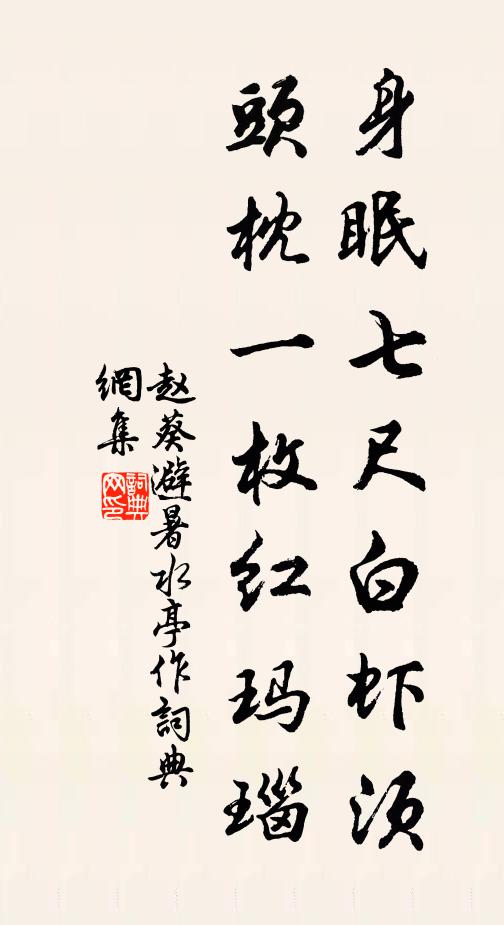 身眠七尺白虾须
頭枕一枚红玛瑙
赵葵避暑水亭作詞典
網集
詞典
网印